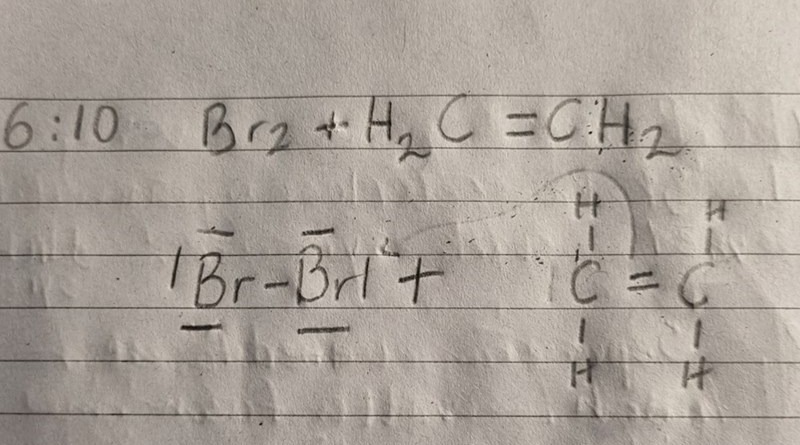 6:10 Br2 + H₂C = CH₂
H H
|Br-Br| + C = C
H H